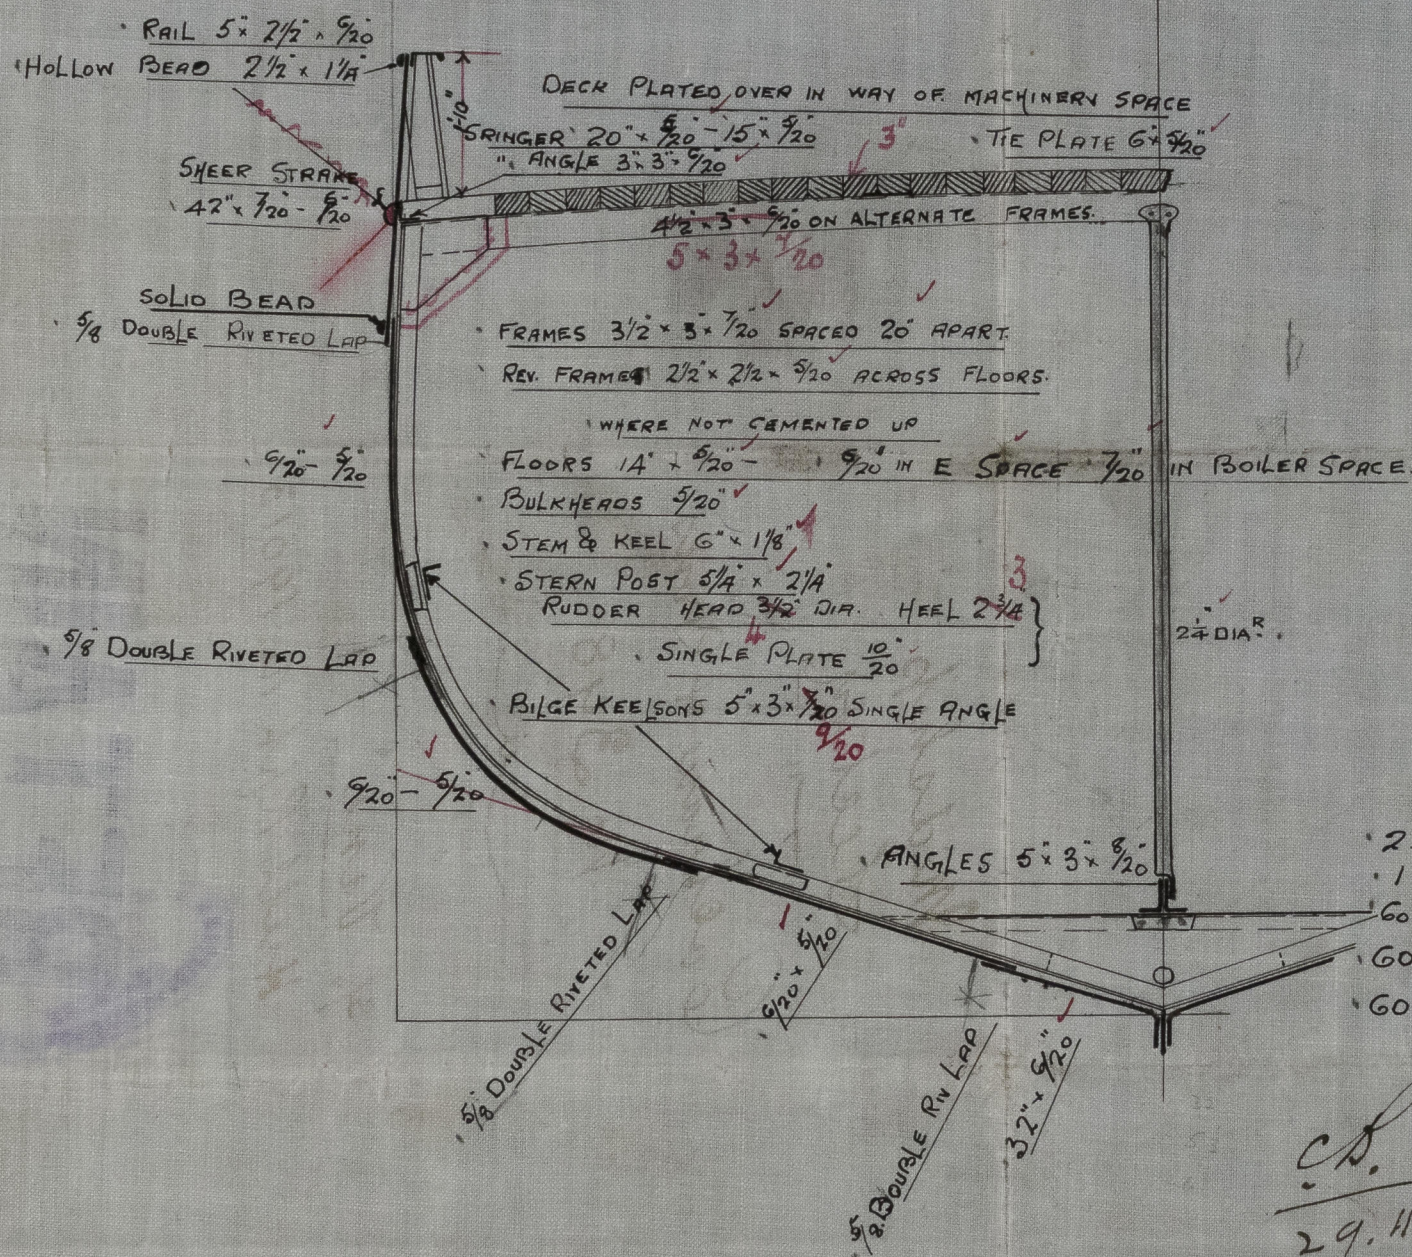 RAIL 5" × 2½" × 6/20"
HOLLOW BEAD 2½" × 1¼"
1'-10"
DECK PLATED OVER IN WAY OF MACHINERY SPACE
SRINGER 20" × 6/20" - 15" × 5/20"
3"
TIE PLATE 6" × 5/20"
" ANGLE 3" × 3" × 6/20"
SHEER STRAKE
42" × 7/20" - 6/20"
4½" × 3" × 6/20" ON ALTERNATE FRAMES.
5 × 3 × 7/20
SOLID BEAD
5/8" DOUBLE RIVETED LAP
FRAMES 3½" × 3" × 7/20" SPACED 20" APART.
REV. FRAMES 2½" × 2½ × 5/20" ACROSS FLOORS.
WHERE NOT CEMENTED UP
6/20" - 5/20"
FLOORS 14" × 5/20" - 6/20" IN E SPACE 7/20" IN BOILER SPACE.
BULKHEADS 5/20"
STEM & KEEL 6" × 1⅛"
STERN POST 5¼" × 2¼"
3
RUDDER HEAD 3½" DIA. HEEL 2¾"
4
2¼" DIAR.
SINGLE PLATE 10/20"
5/8" DOUBLE RIVETED LAP
BILGE KEELSONS 5" × 3" × 7/20" SINGLE ANGLE
9/20
6/20" - 5/20"
ANGLES 5" × 3" × 8/20"
2
1
60
60
60
5/8" DOUBLE RIVETED LAP
6/20" × 5/20"
5/8" DOUBLE RIV LAP
32" × 6/20"
29.11